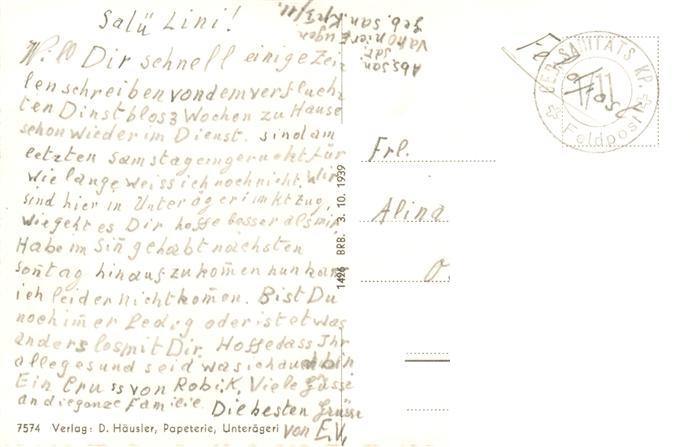 Salü Lini!
Will Dir schnell einige Zei
len schreiben von dem verfluch
ten Dinst blos 3 Wochen zu Hause
schon wieder im Dienst. sind am
letzten Samstag eingerückt für
wie lange weiss ich noch nicht. Wir
sind hier in Unterägeri im ktzug,
wie geht es Dir hoffe besser als mir
Habe im Sin̄ gehabt nächsten
son̄tag hinauf zu kom̄en nun kan̄
ich leider nicht kom̄en. Bist Du
noch im̄er Ledig oder ist etwas
anders los mit Dir. Hoffe dass Ihr
alle gesund seid was ich auch bin
Ein Gruss von Robi.K. Viele Grüsse
an die ganze Familie. Die besten Grüsse
von E.V.
7574 Verlag: D. Häusler, Papeterie, Unterägeri
1426 BRB. 3. 10. 1939
Abs. San.
Sdt.
Eugen
Geb. San. Kp. 3/11.
Feldpost
GEB. SANITÄTS KP.
Feldpost
Frl.
Alina
O.